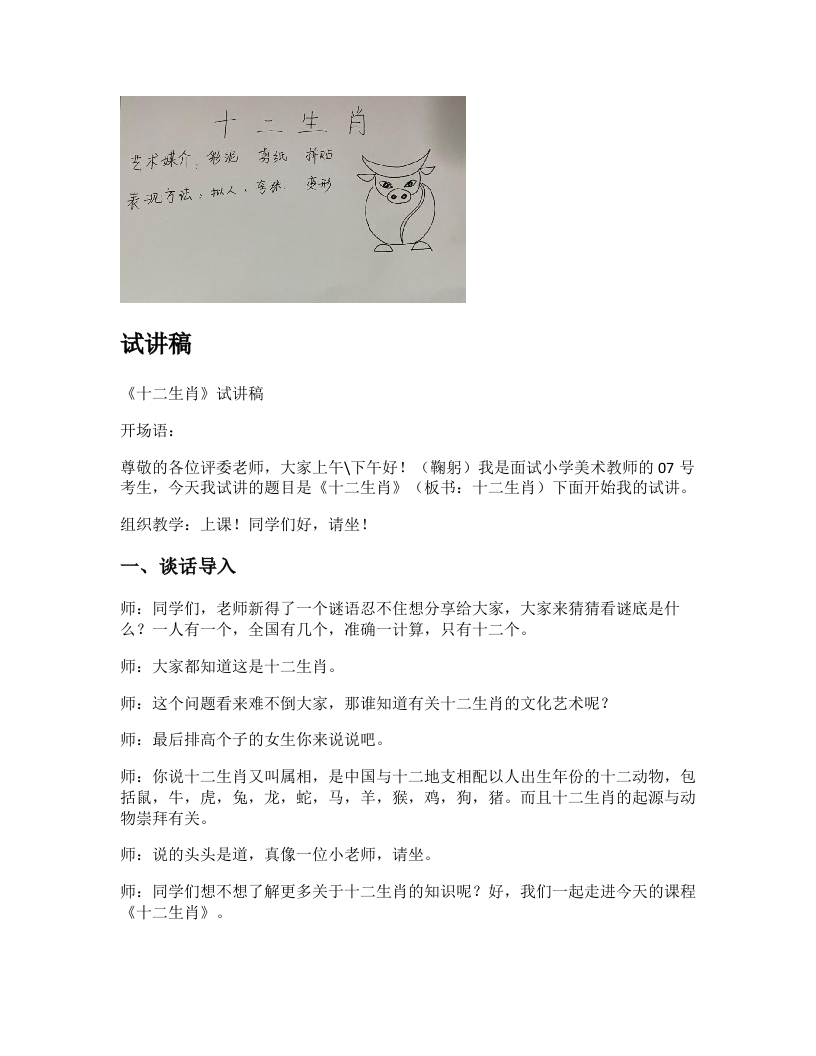 十二生肖
艺术媒介：彩泥 剪纸 拼贴
表现方法：拟人、夸张、变形
试讲稿
《十二生肖》试讲稿
开场语：
尊敬的各位评委老师，大家上午\下午好！（鞠躬）我是面试小学美术教师的 07 号
考生，今天我试讲的题目是《十二生肖》（板书：十二生肖）下面开始我的试讲。
组织教学：上课！同学们好，请坐！
一、谈话导入
师：同学们，老师新得了一个谜语忍不住想分享给大家，大家来猜猜看谜底是什
么？一人有一个，全国有几个，准确一计算，只有十二个。
师：大家都知道这是十二生肖。
师：这个问题看来难不倒大家，那谁知道有关十二生肖的文化艺术呢？
师：最后排高个子的女生你来说说吧。
师：你说十二生肖又叫属相，是中国与十二地支相配以人出生年份的十二动物，包
括鼠，牛，虎，兔，龙，蛇，马，羊，猴，鸡，狗，猪。而且十二生肖的起源与动
物崇拜有关。
师：说的头头是道，真像一位小老师，请坐。
师：同学们想不想了解更多关于十二生肖的知识呢？好，我们一起走进今天的课程
《十二生肖》。